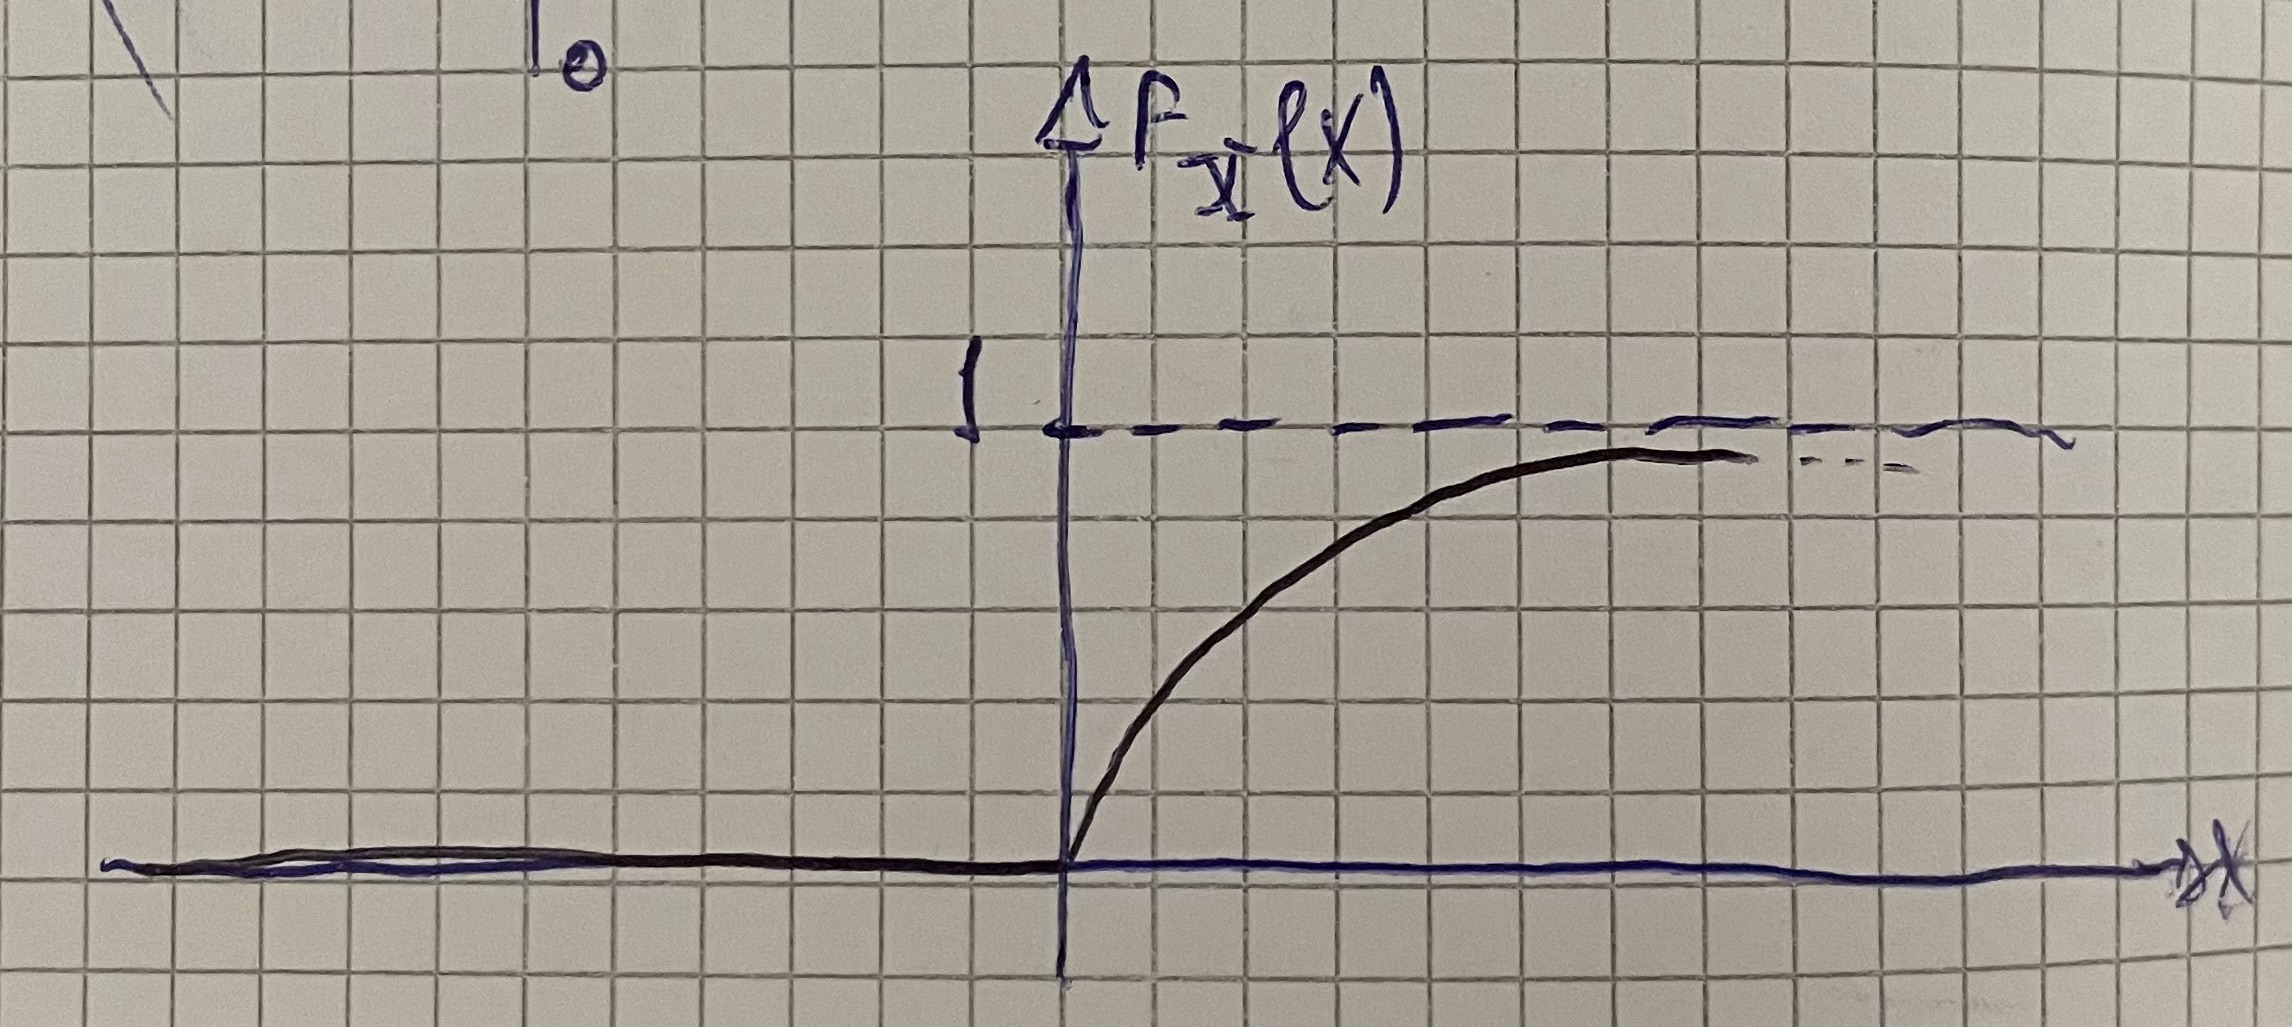 0
F_X(x)
1
x